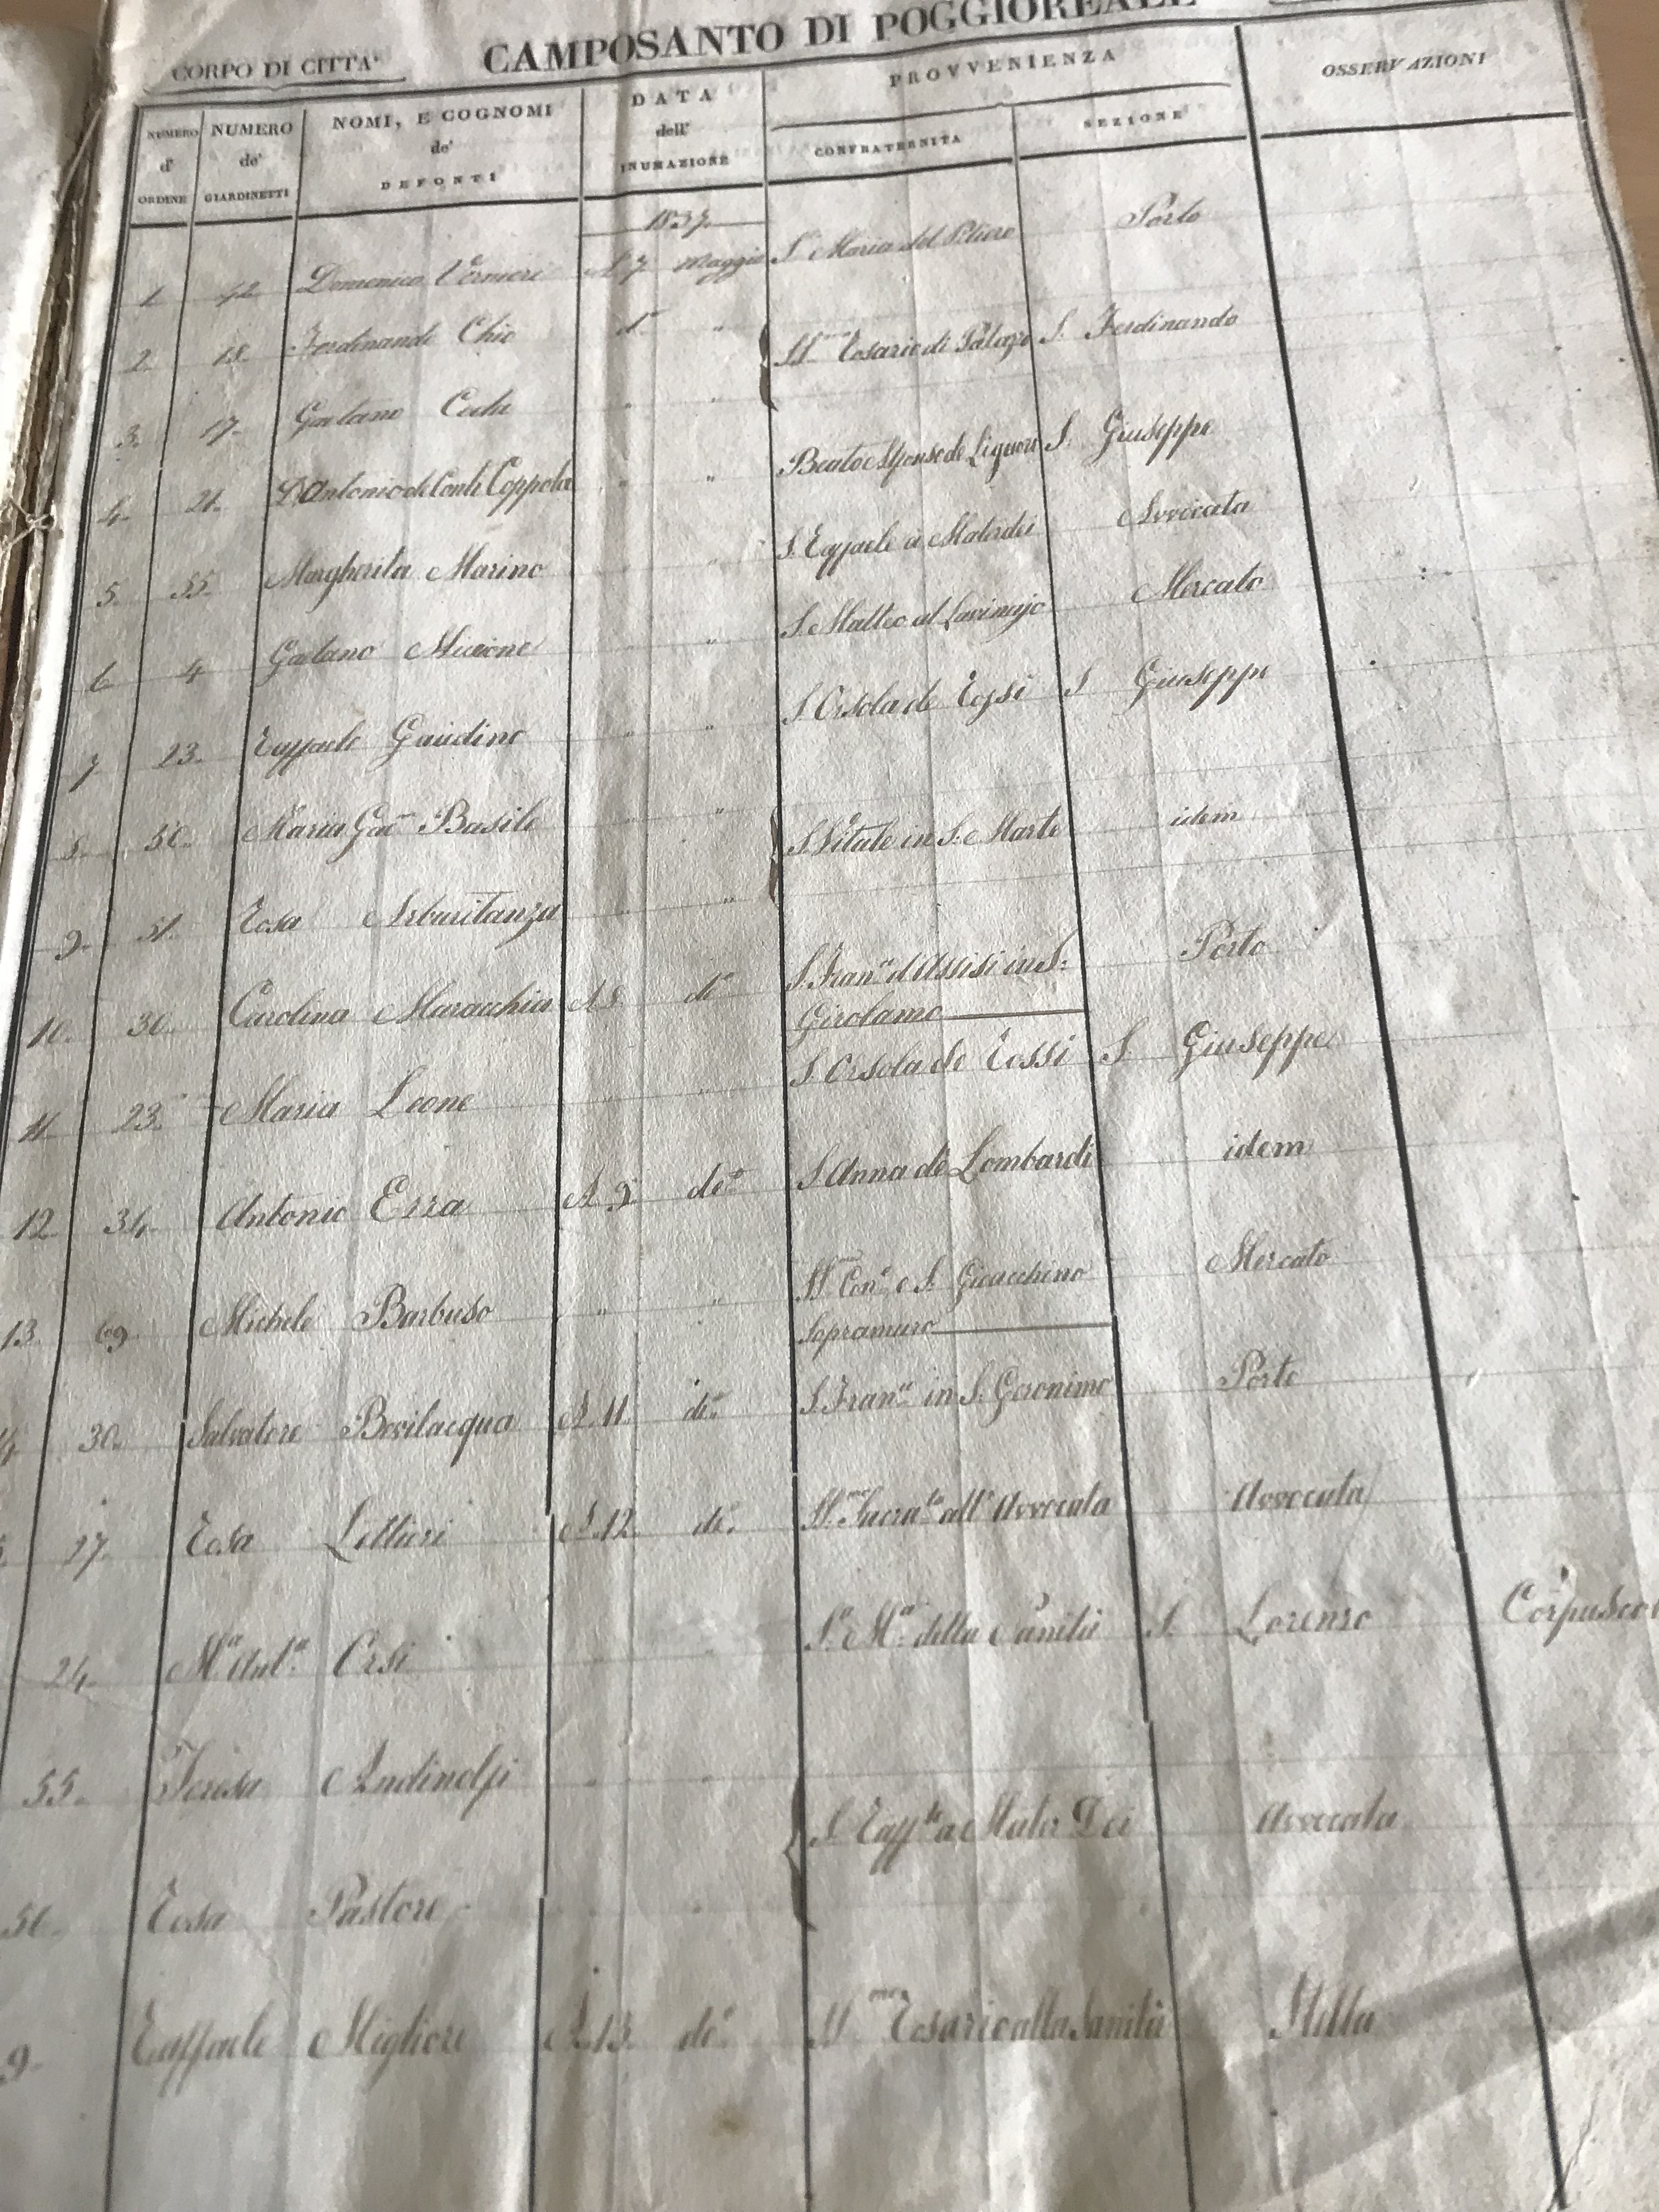 CORPO DI CITTA'
CAMPOSANTO DI POGGIOREALE
NUMERO d' ORDINE
NUMERO de' GIARDINETTI
NOMI, E COGNOMI de' DEFONTI
DATA dell' INUMAZIONE
PROVVENIENZA
CONFRATERNITA
SEZIONE
OSSERVAZIONI
1837
1. 42. Domenico A 7 Maggio S. Maria del Piliero Porto
2. 18. Ferdinando Chio do " SSmo Rosario di Palazzo S. Ferdinando
3. 17. Gaetano " "
4. 21. D Antonio de Conti Coppola " " Beato Alfonso de Liguori S. Giuseppe
5. 55. Margherita Marino " S. Raffaele a Materdei Avvocata
6 4 Gaetano " S. Matteo al Lavinajo Mercato
7 23. Raffaele Gaudino " " S. Orsola de Rossi S. Giuseppe
8. 50. Maria Gae Basile " " S. Vitale in S. Marta idem
9. 51. Rosa " "
10. 30. Carolina A 8 do S. Franco d'Assisi in S.
Girolamo Porto
11. 23. Maria Leone " S. Orsola de Rossi S. Giuseppe
12 34. Antonio Erra A 9 do S. Anna de Lombardi idem
13. 69 Michele Barbuso " " SSma Cone e S. Gioacchino
Sopramuro Mercato
30. Salvatore Bevilacqua A 11 do S. Franco in S. Geronimo Porto
17. Rosa Lettieri A 12 do SSmo Sacrato all' Avvocata Avvocata
24. Ma Anta Orsi " Sa Ma della Sanità S. Lorenzo
55. Teresa " " S. Raffle a Mater Dei Avvocata
Rosa Pastore
9. Raffaele Migliore A 13 do SSmo Rosario alla Sanità Stella